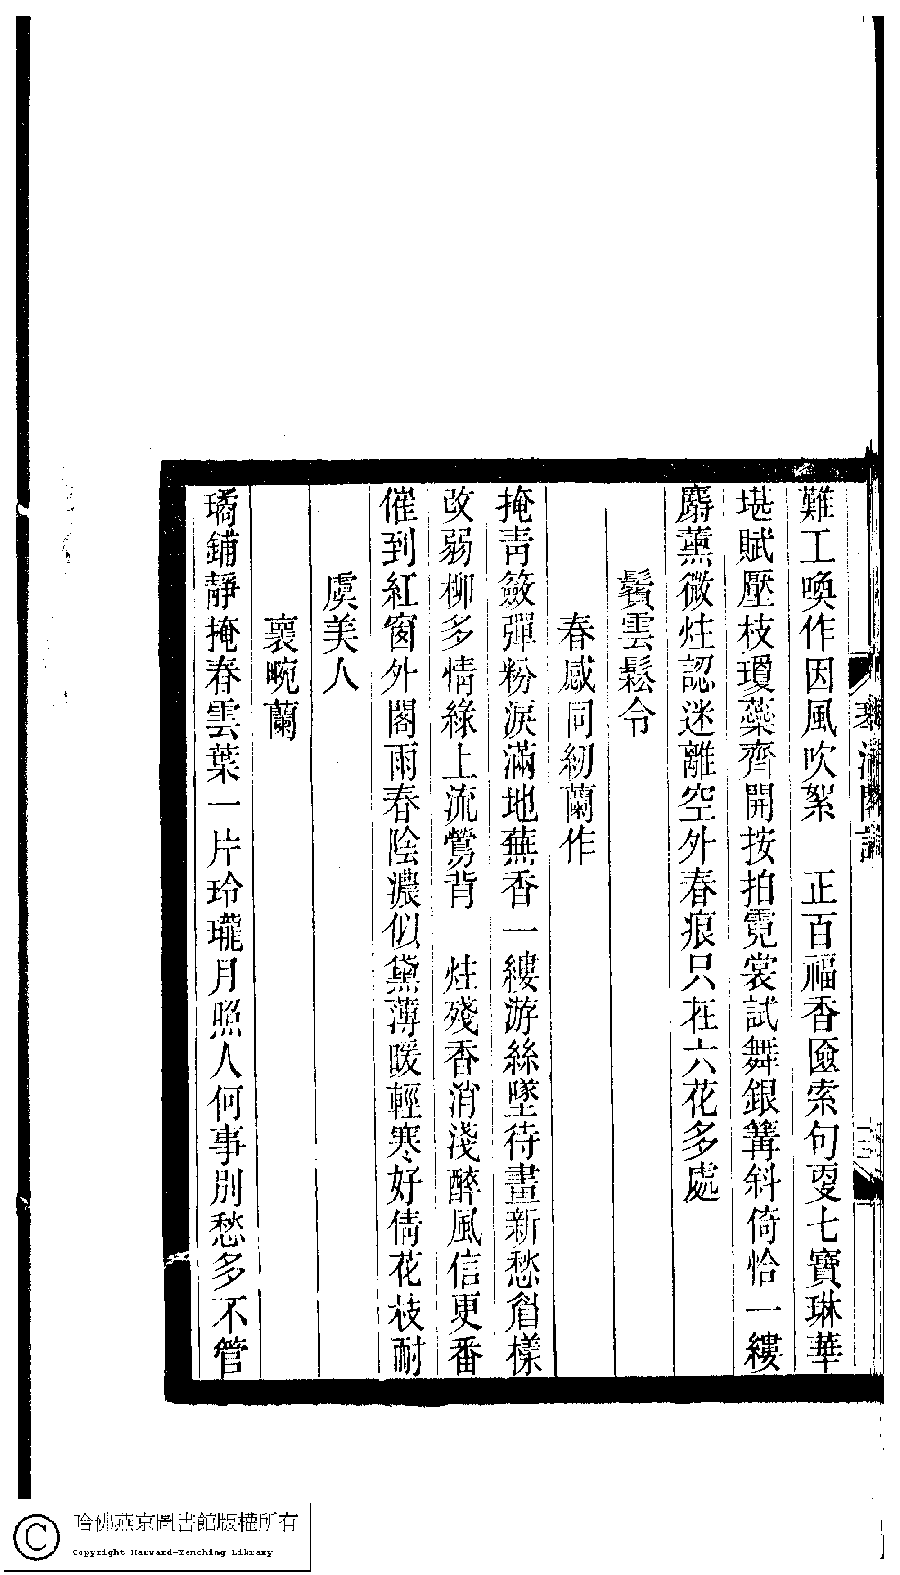 難工喚作因風吹絮　正百福香匳索句叟七寶琳華
堪賦壓枝瓊蘂齊開按拍霓裳試舞銀篝斜倚恰一縷
麝薰微炷認迷離空外春痕只在六花多處
鬢雲鬆令
春感同紉蘭作
掩靑簽彈粉淚滿地蕪香一縷游絲墜待畫新愁眉樣
改弱柳多情綠上流鶯背　炷殘香消淺醉風信更番
催到紅窗外閣雨春陰濃似黛薄暖輕寒好倩花枝耐
虞美人
褱畹蘭
璚鋪靜掩春雲葉一片玲瓏月照人何事別愁多不管
哈佛燕京圖書館版權所有
Copyright Harvard-Yenching Library